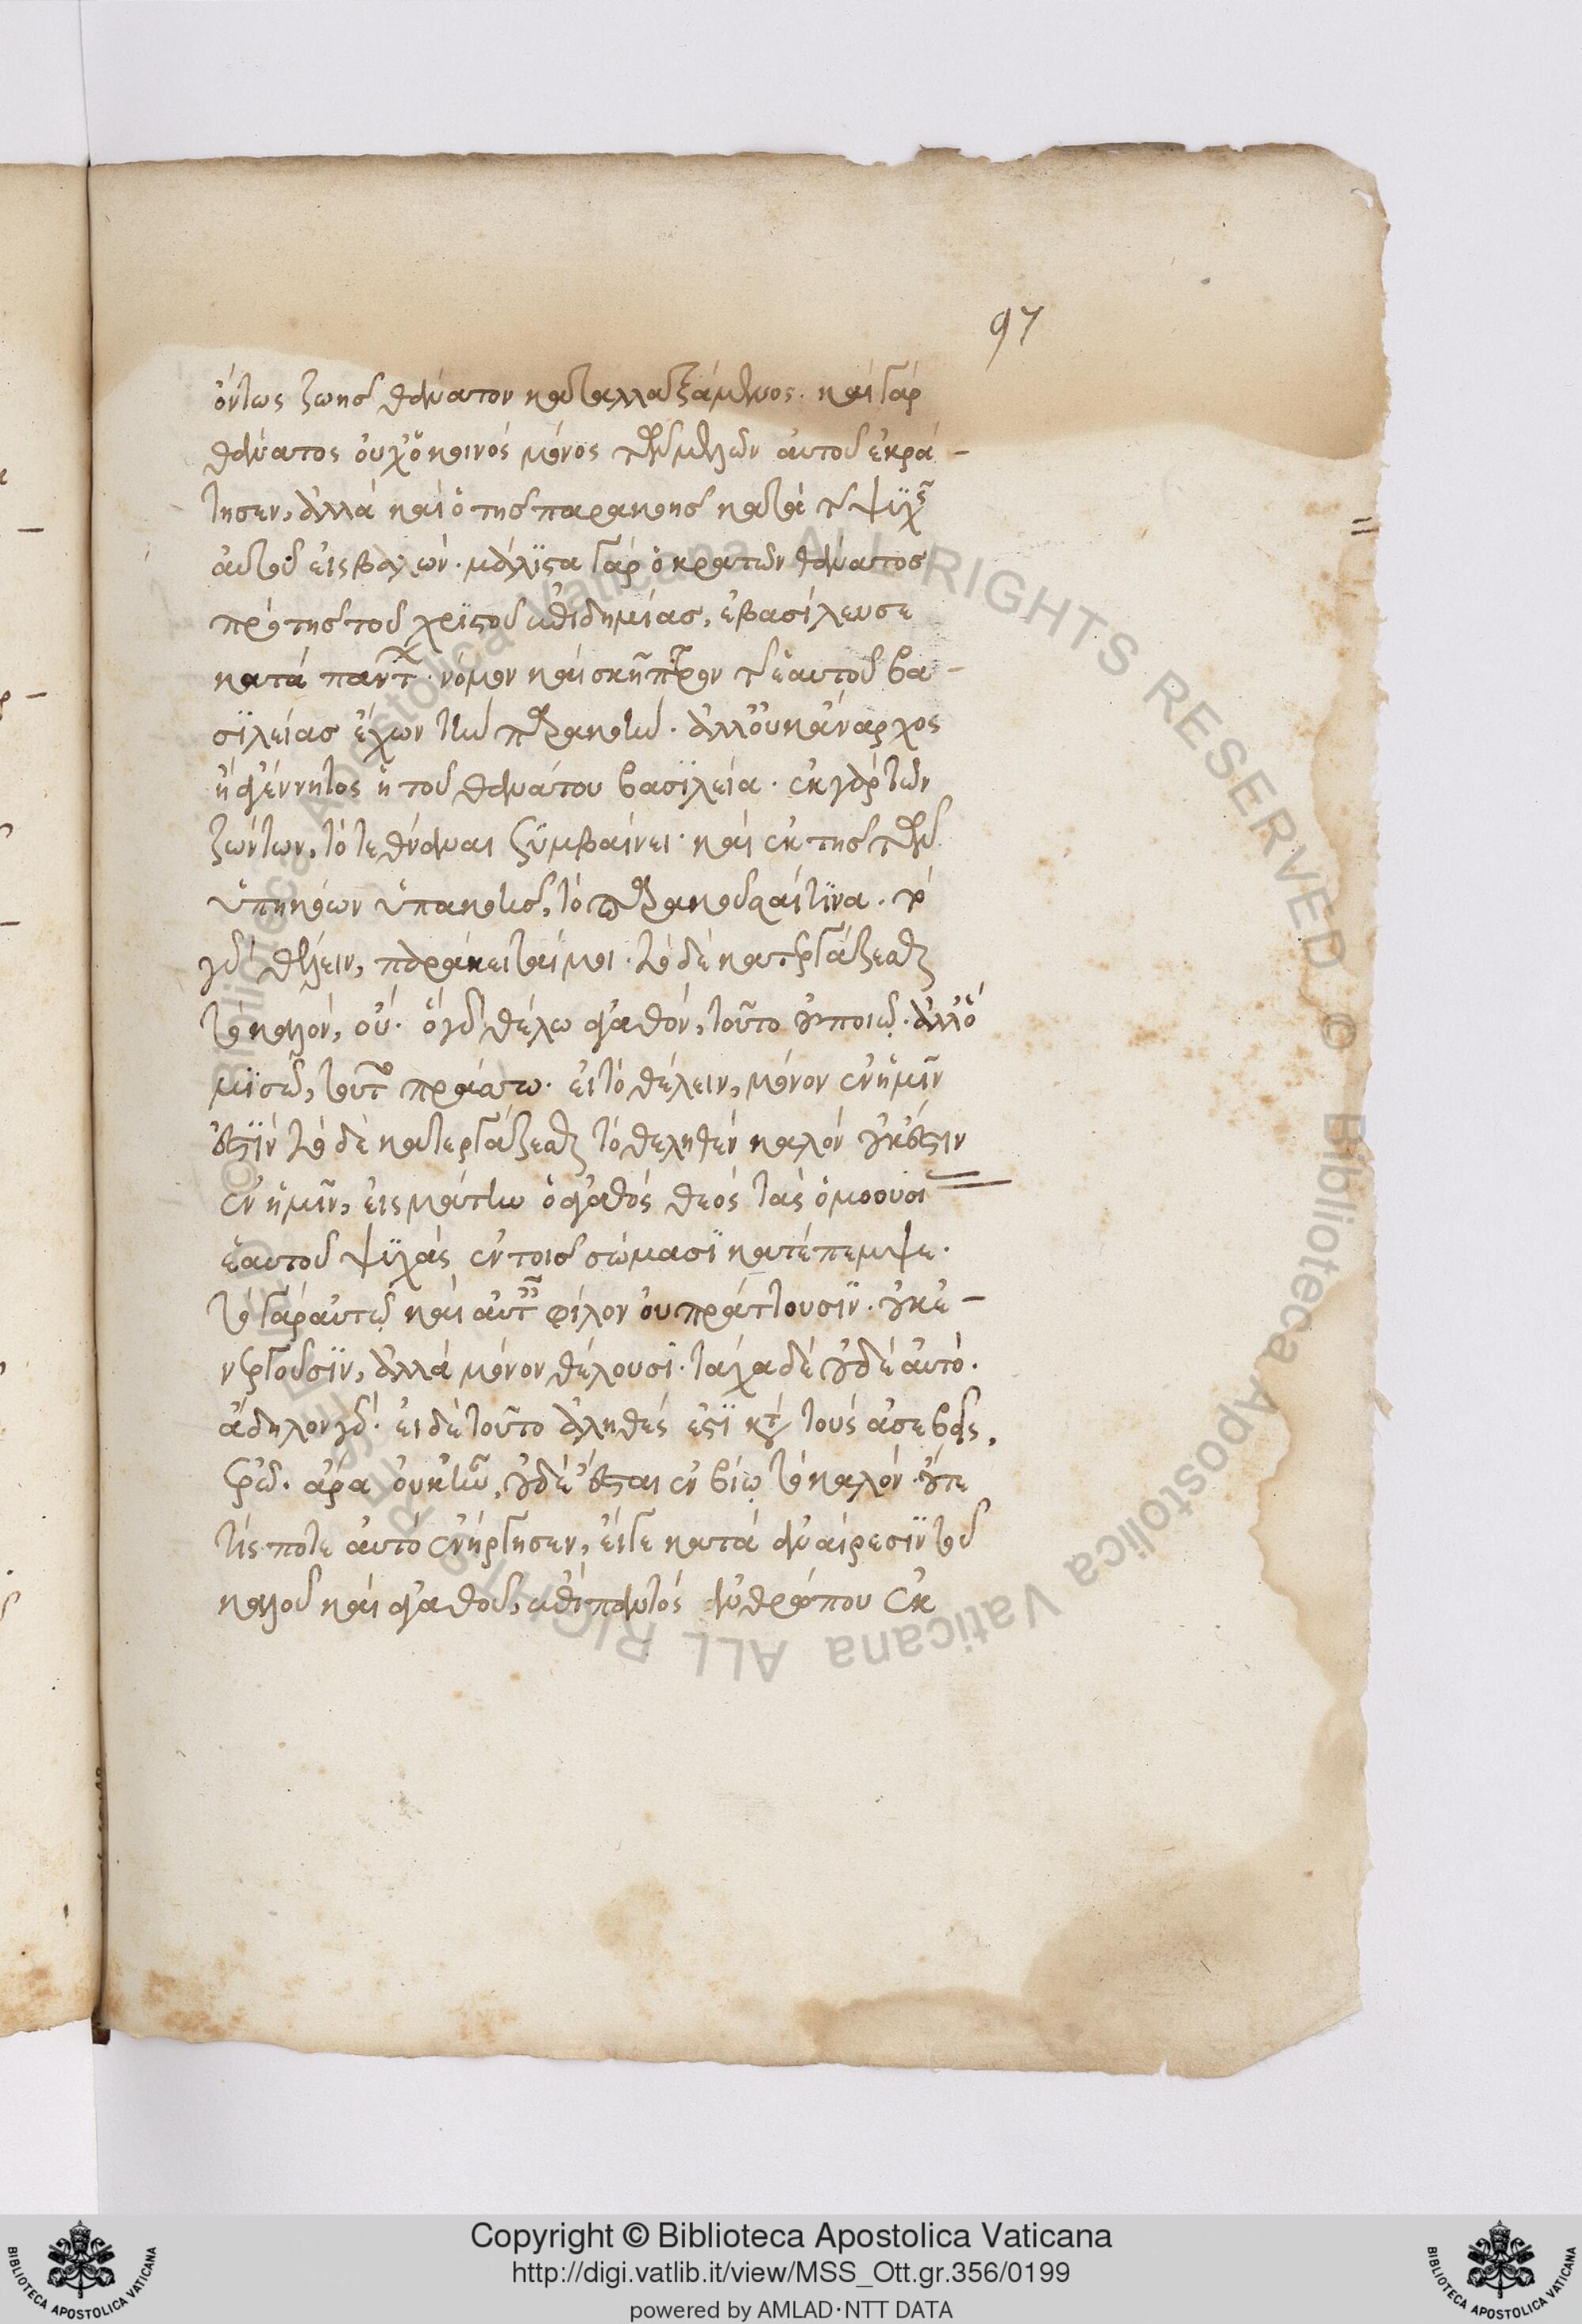 97
ὄντως ζωῆς θάνατον καταλλαξάμενος. καὶ γὰρ
θάνατος οὐχ ὁ κοινὸς μόνος τῶν μελῶν αὐτοῦ ἐκρά-
τησεν, ἀλλὰ καὶ ὁ τῆς παρακοῆς κατὰ τῆς ψυχῆς
αὐτοῦ εἰσβαλών. μάλιστα γὰρ ὁ κρατῶν θάνατος
πρὸ τῆς τοῦ χριστοῦ ἐπιδημίας, ἐβασίλευσε
κατὰ πάντων. νόμον καὶ σκῆπτρον τῆς ἑαυτοῦ βα-
σιλείας ἔχων τὴν παρακοήν. ἀλλ' οὐκ ἄναρχος
ἢ ἀγέννητος ἡ τοῦ θανάτου βασιλεία. ἐκ γὰρ τῶν
ζώντων, τὸ τεθνάναι ξυμβαίνει. καὶ ἐκ τῆς τῶν
ὑπηκόων ὑπακοῆς, τὸ παρακοῦσαί τινα. τὸ
γὰρ θέλειν, παράκειταί μοι. τὸ δὲ κατεργάζεσθαι
τὸ καλόν, οὔ. ὃ γὰρ θέλω ἀγαθόν, τοῦτο οὐ ποιῶ. ἀλλ' ὃ
μισῶ, τοῦτο πράττω. εἰ τὸ θέλειν, μόνον ἐν ἡμῖν
ἐστὶν τὸ δὲ κατεργάζεσθαι τὸ θεληθὲν καλὸν οὐκ ἔστιν
ἐν ἡμῖν, εἰς μάτην ὁ ἀγαθὸς θεὸς τὰς ὁμοουσί
ἑαυτοῦ ψυχὰς ἐν τοῖς σώμασι κατέπεμψε.
τὸ γὰρ αὐτῷ καὶ αὐταῖς φίλον οὐ πράττουσιν. οὐκ ἐ-
νεργοῦσιν, ἀλλὰ μόνον θέλουσι. τάχα δὲ οὐδὲ αὐτό.
ἄδηλον γάρ. εἰ δὲ τοῦτο ἀληθές ἐστι κατὰ τοὺς ἀσεβεῖς,
ἐρῶ. ἆρα οὐκ ἦν, οὐδὲ ἔσται ἐν βίῳ τὸ καλόν. οὔτε
τίς ποτε αὐτὸ ἐνήργησεν, εἴτε κατὰ ἀναίρεσιν τοῦ
καλοῦ καὶ ἀγαθοῦ, ἐπὶ παντὸς ἀνθρώπου ἐκ
Copyright © Biblioteca Apostolica Vaticana
http://digi.vatlib.it/view/MSS_Ott.gr.356/0199
powered by AMLAD·NTT DATA